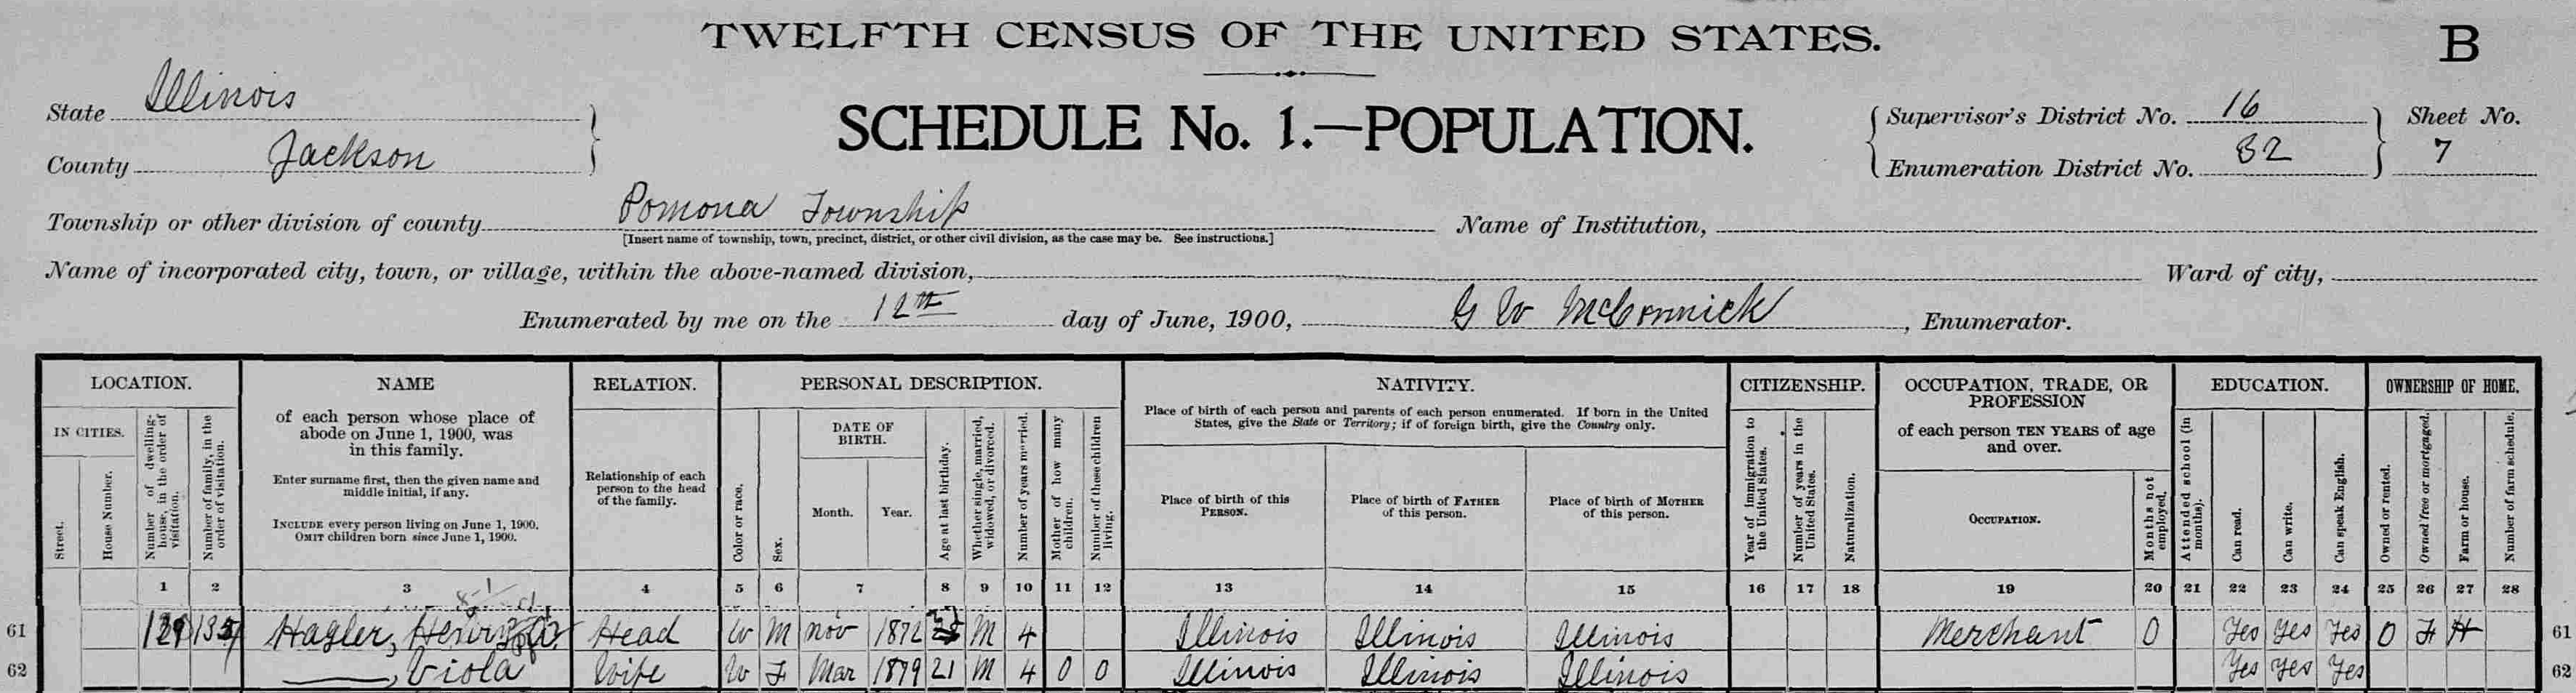 TWELFTH CENSUS OF THE UNITED STATES.
B
State Illinois
County Jackson
SCHEDULE No. 1.—POPULATION.
Supervisor's District No. 16
Enumeration District No. 82
Sheet No.
7
Township or other division of county Pomona Township
[Insert name of township, town, precinct, district, or other civil division, as the case may be. See instructions.]
Name of Institution,
Name of incorporated city, town, or village, within the above-named division,
Ward of city,
Enumerated by me on the 12th day of June, 1900, G W McCormick, Enumerator.
LOCATION.
IN CITIES.
Street.
House Number.
Number of dwelling-house, in the order of visitation.
Number of family, in the order of visitation.
NAME
of each person whose place of
abode on June 1, 1900, was
in this family.
Enter surname first, then the given name and
middle initial, if any.
INCLUDE every person living on June 1, 1900.
OMIT children born since June 1, 1900.
RELATION.
Relationship of each
person to the head
of the family.
PERSONAL DESCRIPTION.
Color or race.
Sex.
DATE OF
BIRTH.
Month.
Year.
Age at last birthday.
Whether single, married, widowed, or divorced.
Number of years married.
Mother of how many children.
Number of these children living.
NATIVITY.
Place of birth of each person and parents of each person enumerated. If born in the United
States, give the State or Territory; if of foreign birth, give the Country only.
Place of birth of this
PERSON.
Place of birth of FATHER
of this person.
Place of birth of MOTHER
of this person.
CITIZENSHIP.
Year of immigration to the United States.
Number of years in the United States.
Naturalization.
OCCUPATION, TRADE, OR
PROFESSION
of each person TEN YEARS of age
and over.
OCCUPATION.
Months not employed.
EDUCATION.
Attended school (in months).
Can read.
Can write.
Can speak English.
OWNERSHIP OF HOME.
Owned or rented.
Owned free or mortgaged.
Farm or house.
Number of farm schedule.
1 2 3 4 5 6 7 8 9 10 11 12 13 14 15 16 17 18 19 20 21 22 23 24 25 26 27 28
61 129 Hagler, Henry Head W M Nov 1872 M 4 Illinois Illinois Illinois Merchant 0 Yes Yes Yes O F H 61
62 ——, Viola Wife W F Mar 1879 21 M 4 0 0 Illinois Illinois Illinois Yes Yes Yes 62